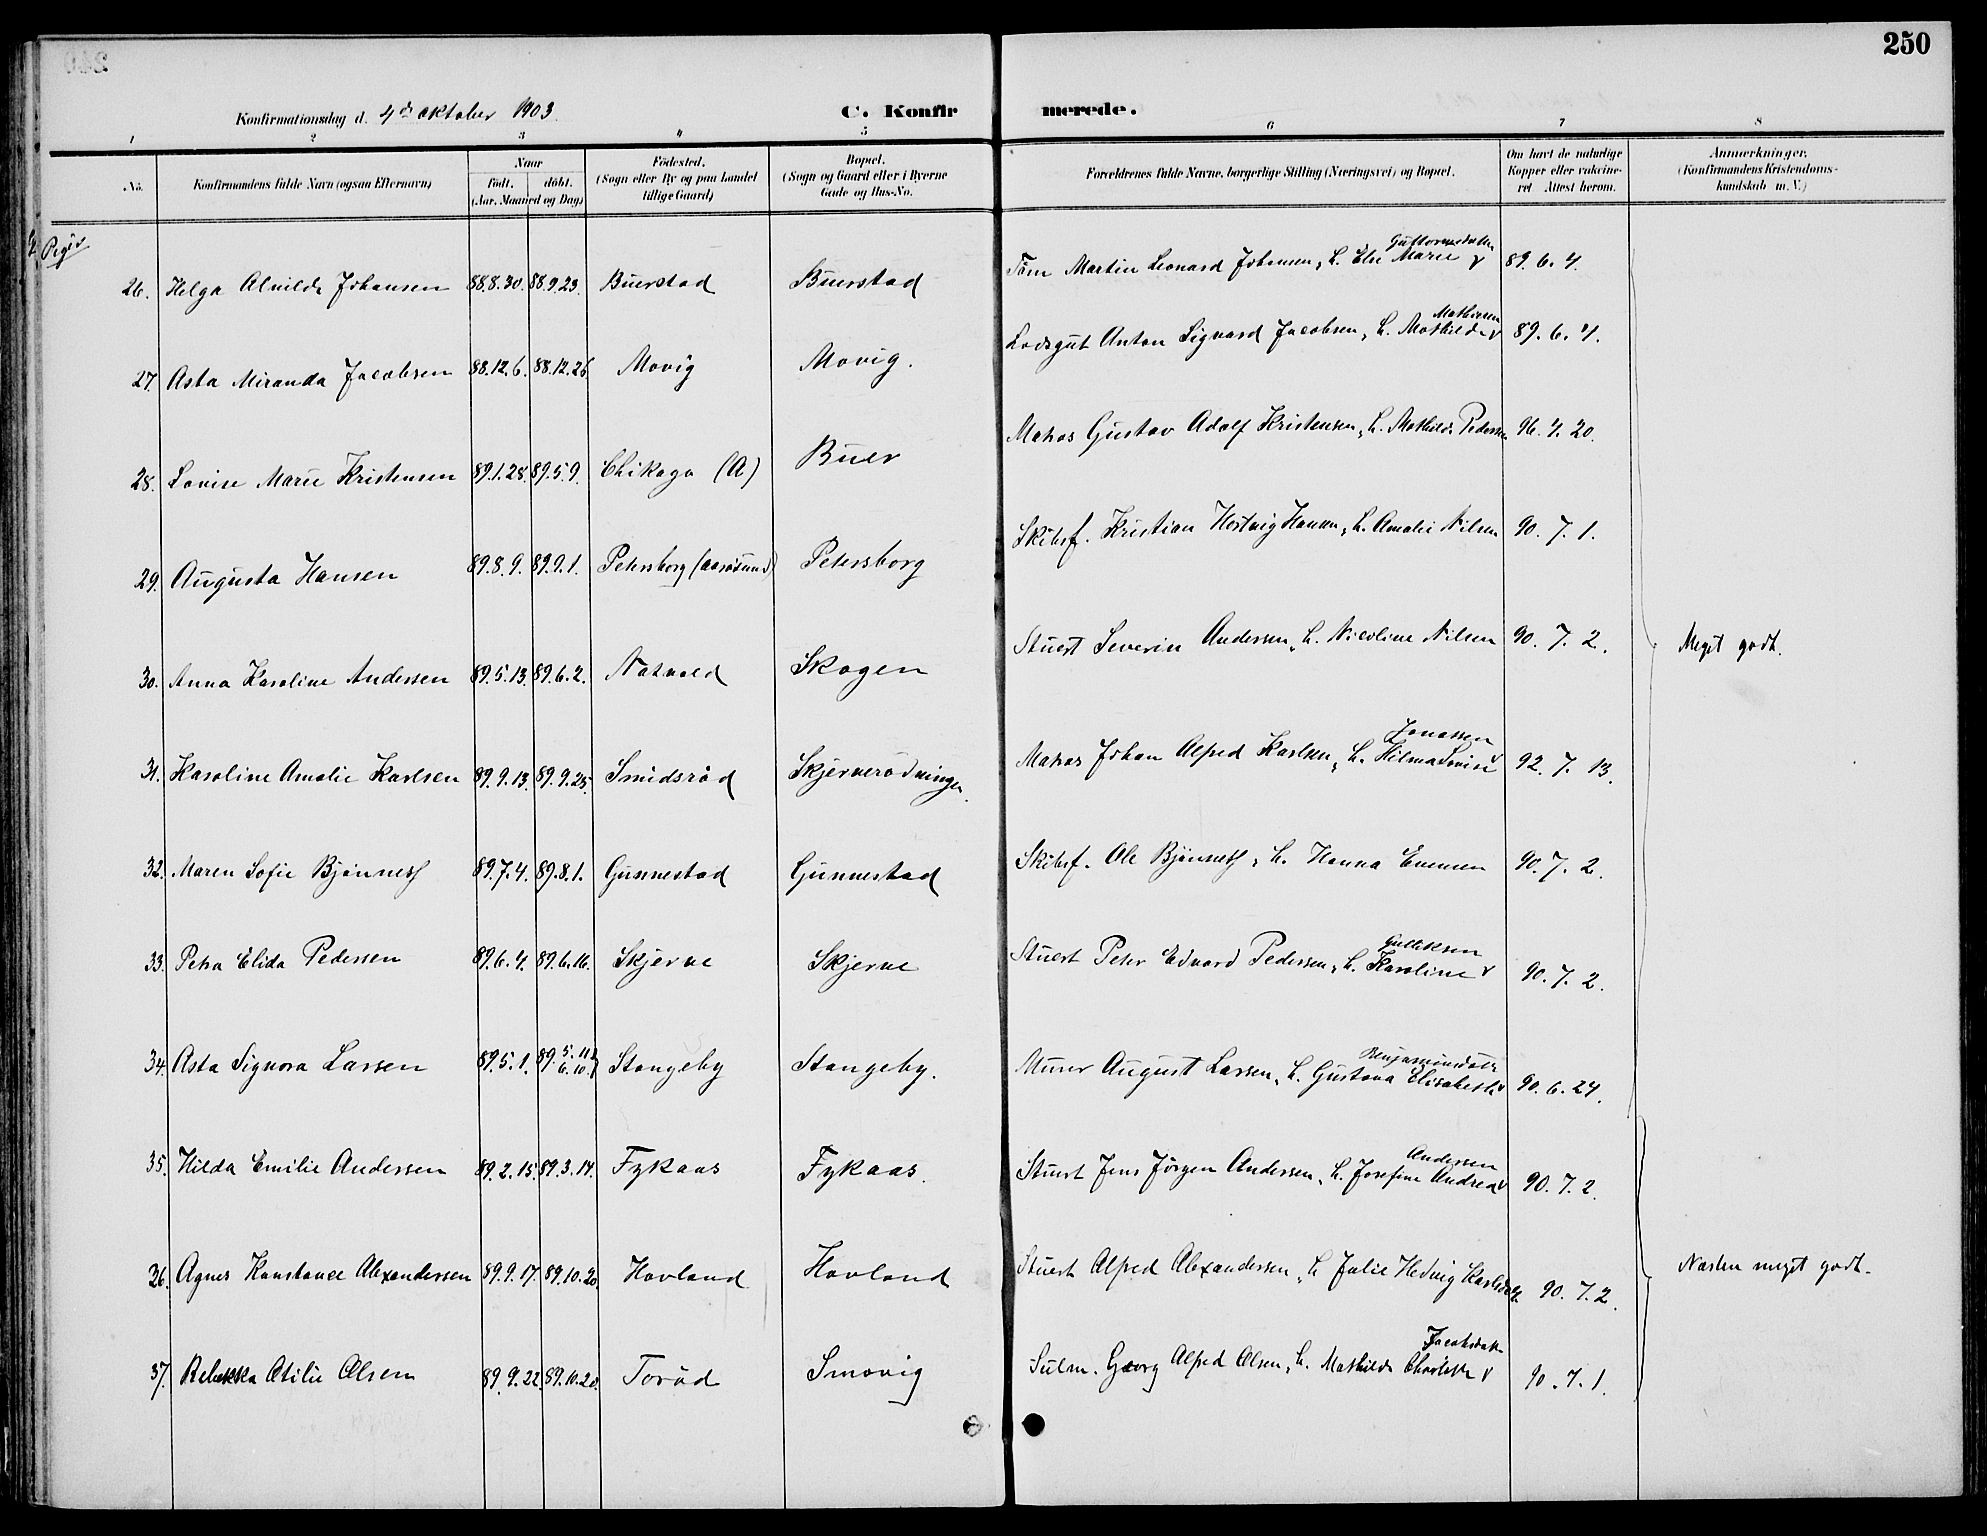 250
Konfirmationsdag d. 4de oktober 1903.
C. Konfirmerede.
1 2 3 4 5 6 7 8
No.
Konfirmandens fulde Navn (ogsaa Efternavn)
Naar
født. døbt.
(Aar, Maaned og Dag)
Fødested.
(Sogn eller By og paa Landet
tillige Gaard)
Bopæl.
(Sogn og Gaard eller i Byerne
Gade og Hus-No.
Forældrenes fulde Navne, borgerlige Stilling (Næringsvei) og Bopæl.
Om havt de naturlige
Kopper eller vakcine-
ret Attest herom.
Anmærkninger.
(Konfirmandens Kristendoms-
kundskab m. V.)
Piger
26. Helga Alvilde Johansen 88.8.30. 88.9.23. Buerstad Buerstad Tøm Martin Leonard Johansen, h. Else Marie Guttormsdatter 89.6.4.
27. Asta Miranda Jacobsen 88.12.6. 88.12.26 Movig Movig. Lodsgut Anton Sigvard Jacobsen, h. Mathilde Mathiesen 89.6.4.
28. Lovise Marie Kristensen 89.1.28. 89.5.9. Chikago (A) Buer Matros Gustav Adolf Kristensen, h. Mathilde Pedersen 96.4.20.
29. Augusta Hansen 89.8.9. 89.9.1. Petersborg (Aarøsund) Petersborg Skibsf. Kristian Hartvig Hansen, h. Amalie Nilsen 90.7.1.
30. Anna Karoline Andersen 89.5.13. 89.6.2. Natvald Skogen Stuert Severin Andersen, h. Nicoline Nilsen 90.7.2.
Meget godt.
31. Karoline Amalie Karlsen 89.9.13. 89.9.25. Smidsrød Skjerverødningen. Matros Johan Alfred Karlsen, h. Hilma Lovise Jonassen 92.7.13.
32. Maren Sofie Bjønnes 89.7.4. 89.8.1. Gunnestad Gunnestad Skibsf. Ole Bjønnes, h. Hanna Evensen 90.7.2.
33. Petra Elida Pedersen 89.6.4. 89.6.16. Skjerve Skjerve Stuert Peter Edvard Pedersen, h. Karoline Gulliksen 90.7.2.
34. Asta Signora Larsen 89.5.1. 89.5.11 6.10. Stangeby Stangeby. Murer August Larsen, h. Gustava Elisabeth Benjaminsdatr 90.6.24.
35. Hilda Emilie Andersen 89.2.15. 89.3.14. Fykaas Fykaas. Stuert Jens Jørgen Andersen, h. Josefine Andrea Andersen 90.7.2.
36. Agnes Konstance Alexandersen 89.9.17. 89.10.20. Hovland Hovland Stuert Alfred Alexandersen, h Julie Hedvig Karlsdatr 90.7.2.
Næsten meget godt.
37. Rebekka Otilie Olsen 89.9.22. 89.10.20. Torød Smovig Sulm. Georg Alfred Olsen, h. Mathilde Charlotte Jacobsdatr 90.7.1.